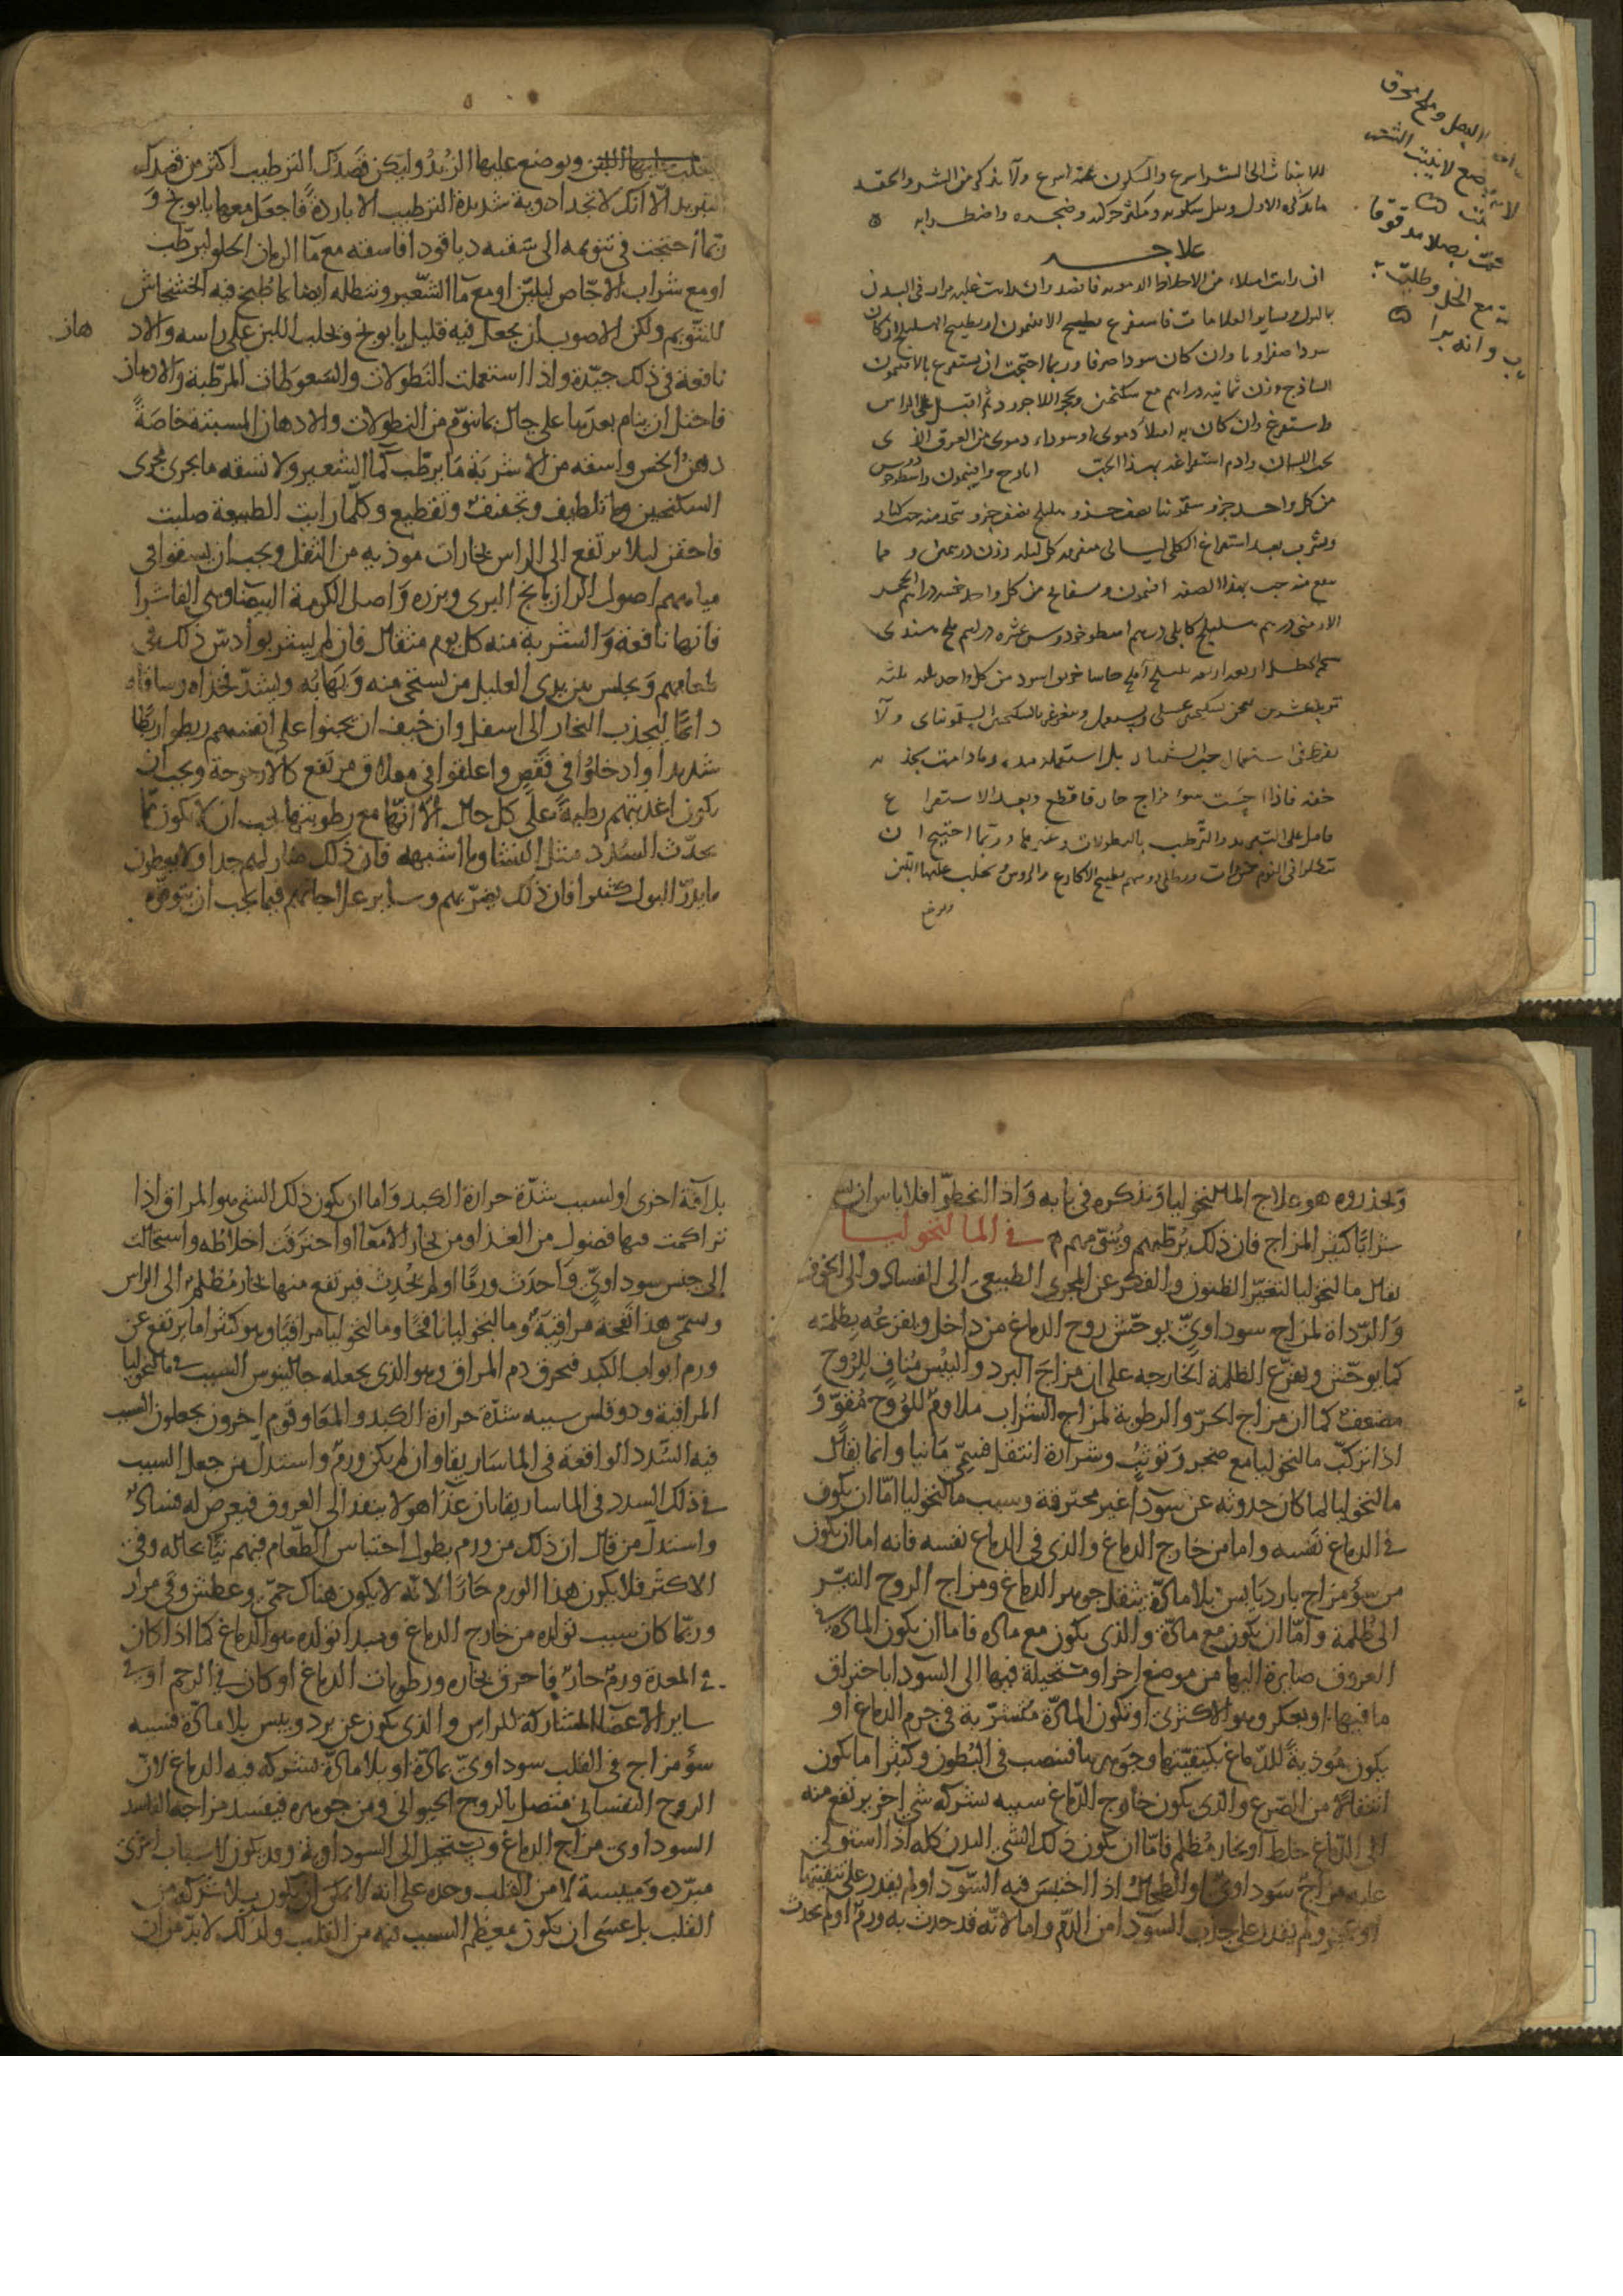 للانبعاث الى الشر اسرع والسكون عنه اسرع ولا يذكر من الشر والحقد
ما يذكره الاول ويقل سكونه ويكثر حركته وضجره واضطرابه
علاجه
ان رايت امتلاء من الاخلاط الدموية فافصد وان رايت غلبة مرار في البدن
بالبول وساير العلامات فاستفرغ بطبيخ الافتيمون او بطبيخ الهليلج ان كان
سوداء صفراويا وان كان سودا صرفا وربما احتجت ان يستفرغ بالافتيمون
الساذج وزن ثمانية دراهم مع سكنجبين وبحجر اللاجورد ثم اقبل على الراس
واستفرغ وان كان به امتلأ دموي او سوداء دموي من العرق الذي
تحت اللسان وادم استفراغه بهذا الحب ايارج وافيتمون واسطوخودوس
من كل واحد جزو سقمونيا نصف جزو هليلج نصف جزو يتخذ منه حب كبار
ويشرب بعد استفراغ الكلي ليالي متفرقة كل ليلة وزن درهمين ومما
ينفع منه حب بهذا الصفة افتيمون وبسفايج من كل واحد خمسة دراهم الحجر
الارمني درهم هليلج كابلي درهم اسطوخودوس عشرة دراهم ملح هندي
شحم الحنظل اربعة اربعة بليلج آملج حاشا خربق اسود من كل واحد ثلثة
تربد عشرين يعجن بسكنجبين عسلي ويستعمل ويغرغر بالسكنجبين السقمونياي ولا
يفرط في استعمال حب الشبيار بل استعمله مدة وما دامت يجد به
خفة فاذا احسست سوء مزاج حار فاقطع وبعد الاستفراغ
فاصل على التبريد والترطيب بالنطولات وغيرها وربما احتيج ان
تنطلوا في اليوم خمس مرات ويطلى روسهم بطبيخ الاكارع والروس يحلب عليها اللبن
ويوضع
البصل وملح محرق
يوضع لا ينبت الشعر
بصلا مدقوقا
مع الخل وطلبت
وانه يبرا
يحلب عليها اللبن ويوضع عليها الزبد وليكن قصدك الترطيب اكثر من قصدك
التبريد الا انك لا تجد ادوية شديدة الترطيب الا باردة فاجعل معها بابونج و
ربما احتجت في تنويمه الى سقيه دياقودا فاسقه مع مآ الرمان الحلو ليرطب
او مع شراب الاجاص ليلين او مع مآ الشعير وتنطله ايضا بما طبخ فيه الخشخاش
للتنويم ولكن الاصوب ان يجعل فيه قليل بابونج ويحلب اللبن على راسه والاد
هان
نافعة في ذلك جيدة واذا استعملت النطولات والسعوطات المرطبة والادهان
فاحتل ان ينام بعدها على حال بما ينوم من النطولات والادهان المسبتة خاصة
دهن الخس واسقه من الاشربة ما يرطب كمآ الشعير ولا تسقه ما يجرى مجرى
السكنجبين وما تلطيف وتجفيف وتقطيع وكلما رايت الطبيعة صلبت
فاحقن ليلا يرتفع الى الراس بخارات موذية من الثفل ويجب ان يسقوا في
مياههم اصول الرازيانج البرى وبزره واصل الكرمة البيضا وهي الفاشرا
فانها نافعة والشربة منه كل يوم مثقال فان لم يشربوا دس ذلك في
طعامهم ويجلس بين يدي العليل من يستحي منه ويهابه ويشد فخذاه وساقاه
دائما ليجذب البخار الى اسفل وان خيف ان يجنوا على انفسهم ربطوا ربطا
شديدا وادخلوا في قفص واعلقوا في معلاق مرتفع كالارجوحة ويجب ان
يكون اغذيتهم رطبة على كل حال الا انها مع رطوبتها يجب ان لا يكون مما
يحدث السدد مثل النشا وما اشبهه فان ذلك ضار لهم جدا ولا يعطون
ما يدر البول كثيرا فان ذلك يضر بهم وساير علاجاتهم فيما يجب ان يتوقوه
ويحذروه هو علاج المالنخوليا ونذكره في بابه واذا انحطوا فلا باس ان
شرابا كثير المزاج فان ذلك يرطبهم وينومهم
في المالنخوليا
يقال مالنخوليا لتغير الظنون والفكر عن المجرى الطبيعى الى الفساد والى الخوف
والرداة لمزاج سوداوي يوحش روح الدماغ من داخل ويفزعه بظلمته
كما يوحش ويفزع الظلمة الخارجه على ان مزاج البرد واليبس مناف للروح
مضعف كما ان مزاج الحر والرطوبة لمزاج الشراب ملاوم للروح مقو و
اذا تركب مالنخوليا مع ضجر وتوثب وشرارة انتقل فسمى مانيا وانما يقال
مالنخوليا لما كان حدوثه عن سودآ غير محترقة وسبب مالنخوليا اما ان يكون
في الدماغ نفسه واما من خارج الدماغ والذى في الدماغ نفسه فانه اما ان يكون
من سؤ مزاج بارد يابس بلا مادة ينقل جوهر الدماغ ومزاج الروح النير
الى ظلمة واما ان يكون مع مادة والذى يكون مع ماده فاما ان يكون المادة في
العروق صايرة اليها من موضع اخر او مستحيلة فيها الى السودا باحتراق
ما فيها او بعكر وهو الاكثرى او تكون المادة متشربة في جرم الدماغ او
يكون موذية للدماغ بكيفيتها وجوهرها فينصب في البطون وكثيرا ما يكون
انتقالا من الصرع والذى يكون خارج الدماغ سببه بشركة شي اخر يرتفع منه
الى الدماغ خلط او بخار مظلم فاما ان يكون ذلك الشي البدن كله اذا استولى
عليه مزاج سوداوي او الطحال اذا احتبس فيه السودا ولم يقدر على تنقيتها
او عجز ولم يقدر على جذب السودا من الدم واما لانه قد حدث به ورم او لم يحدث
بل آفة اخرى او لسبب شدة حرارة الكبد واما ان يكون ذلك الشي هو المراق اذا
تراكمت فيها فضول من الغذا ومن بخار الامعا او احترقت اخلاطه واستحالت
الى جنس سوداوي واحدث ورما او لم يحدث فيرتفع منها بخار مظلم الى الراس
ويسمى هذا نفخة مراقية ومالنخوليا نافخا ومالنخوليا مراقيا وهو كثيرا ما يرتفع عن
ورم ابواب الكبد فيحرق دم المراق وهو الذى يجعله جالينوس السبب في مالنخوليا
المراقية ودوقلس سببه شدة حرارة الكبد والمعا وقوم اخرون يجعلون السبب
فيه السدد الواقعة في الماساريقا وان لم يكن ورم واستدل من جعل السبب
في ذلك السدد في الماساريقا بان غذآ هولا ينفذ الى العروق فيعرض له فساد
واستدل من قال ان ذلك من ورم بطول احتباس الطعام فيهم نيا بحاله وفي
الاكثر فلا يكون هذا الورم حارا لانه لا يكون هناك حمى وعطش وقي مرار
وربما كان سبب تولده من خارج الدماغ ومبدا تولده هو الدماغ كما اذا كان
في المعدة ورم حار فاحرق بخاره ورطوبات الدماغ او كان في الرحم او في
ساير الاعضا المشاركة للراس والذى يكون عن برد ويبس بلا مادة فسببه
سؤ مزاج في القلب سوداوي بمادة او بلا مادة يشركه فيه الدماغ لان
الروح النفساني متصل بالروح الحيواني ومن جوهره فيفسد مزاجه الفاسد
السوداوى مزاج الدماغ ويستحيل الى السوداوية وقد يكون لاسباب اخرى
مبرده وميبسة لا من القلب وحده على انه لا يمكن ان يكون بلا شركة من
القلب بل عسى ان يكون معظم السبب فيه من القلب ولذلك لا بد من ان